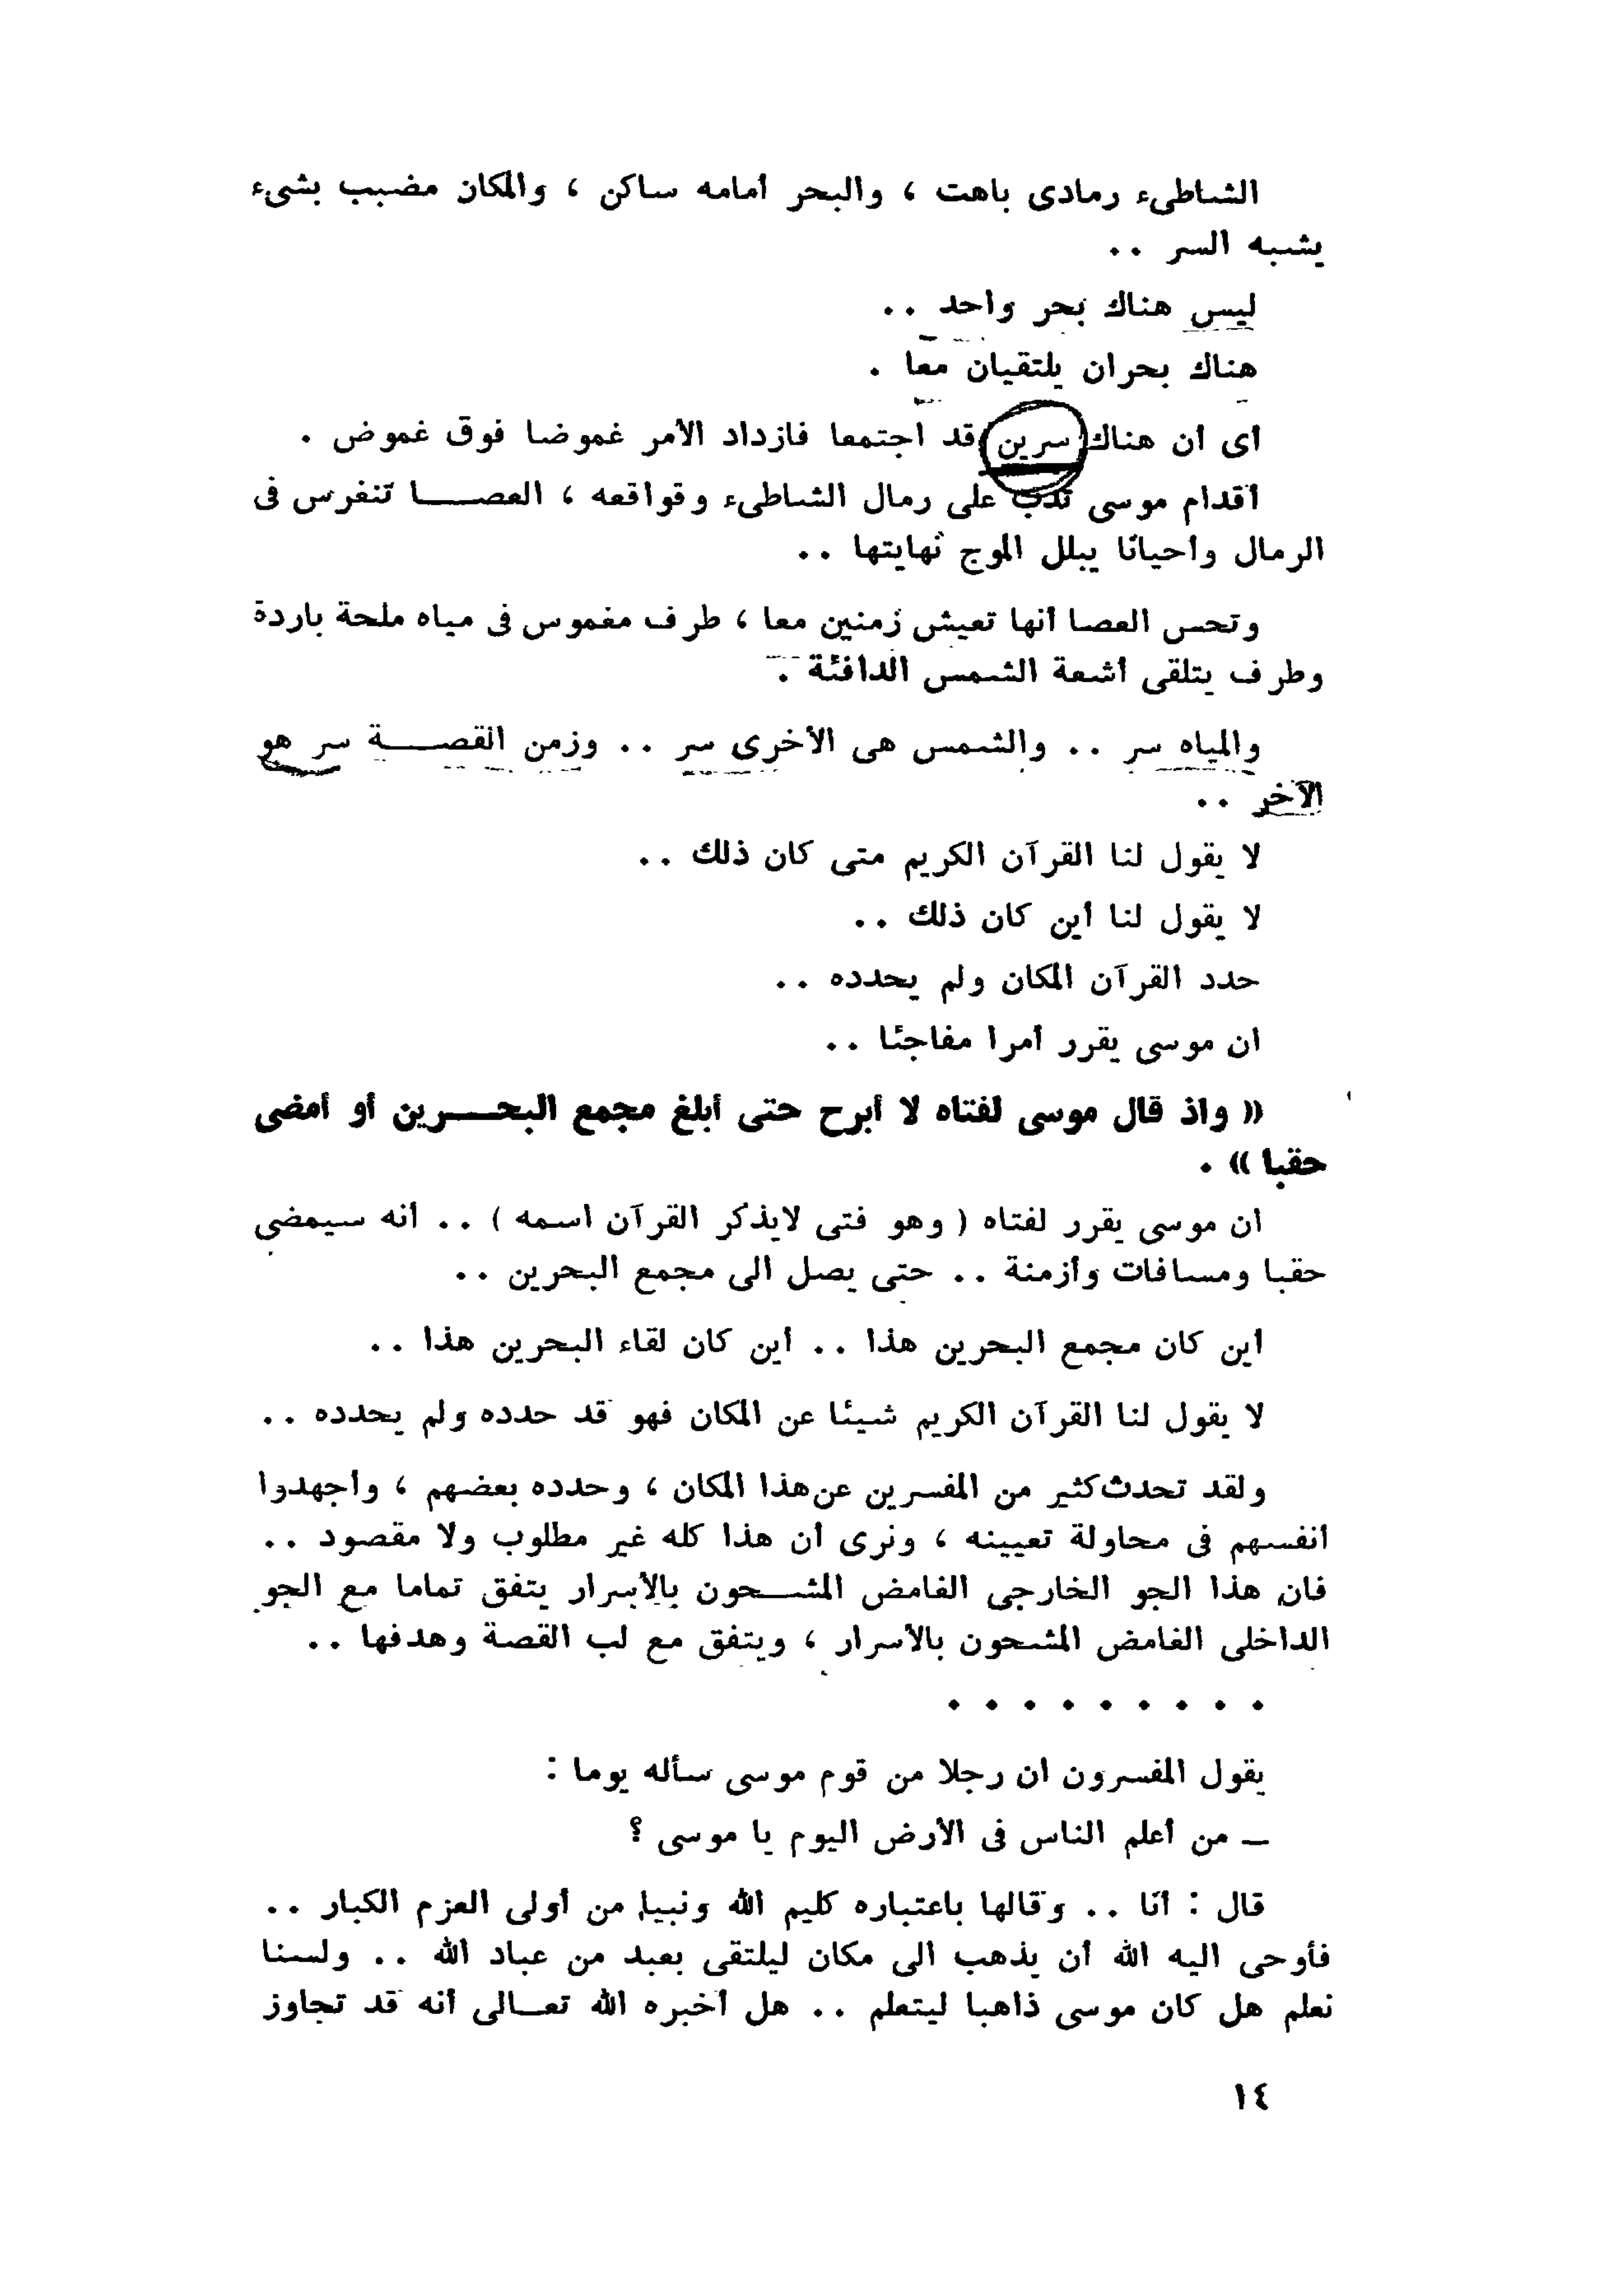 الشاطىء رمادى باهت ، والبحر أمامه ساكن ، والمكان مضبب بشىء
يشبه السر ..
ليس هناك بحر واحد ..
هناك بحران يلتقيان معا .
أى أن هناك سرين قد اجتمعا فازداد الأمر غموضا فوق غموض .
أقدام موسى تدب على رمال الشاطىء وقواقعه ، العصا تنغرس فى
الرمال وأحيانا يبلل الموج نهايتها ..
وتحس العصا أنها تعيش زمنين معا ، طرف مغموس فى مياه ملحة باردة
وطرف يتلقى أشعة الشمس الدافئة .
والمياه سر .. والشمس هى الأخرى سر .. وزمن القصة سر هو
الآخر ..
لا يقول لنا القرآن الكريم متى كان ذلك ..
لا يقول لنا أين كان ذلك ..
حدد القرآن المكان ولم يحدده ..
ان موسى يقرر أمرا مفاجئا ..
« واذ قال موسى لفتاه لا أبرح حتى أبلغ مجمع البحرين أو أمضى
حقبا » .
ان موسى يقرر لفتاه ( وهو فتى لايذكر القرآن اسمه ) .. أنه سيمضى
حقبا ومسافات وأزمنة .. حتى يصل الى مجمع البحرين ..
أين كان مجمع البحرين هذا .. أين كان لقاء البحرين هذا ..
لا يقول لنا القرآن الكريم شيئا عن المكان فهو قد حدده ولم يحدده ..
ولقد تحدث كثير من المفسرين عن هذا المكان ، وحدده بعضهم ، وأجهدوا
أنفسهم فى محاولة تعيينه ، ونرى أن هذا كله غير مطلوب ولا مقصود ..
فان هذا الجو الخارجى الغامض المشحون بالأسرار يتفق تماما مع الجو
الداخلى الغامض المشحون بالأسرار ، ويتفق مع لب القصة وهدفها ..
. . . . . . . . .
يقول المفسرون ان رجلا من قوم موسى سأله يوما :
ـ من أعلم الناس فى الأرض اليوم يا موسى ؟
قال : أنا .. وقالها باعتباره كليم الله ونبيا من أولى العزم الكبار ..
فأوحى اليه الله أن يذهب الى مكان ليلتقى بعبد من عباد الله .. ولسنا
نعلم هل كان موسى ذاهبا ليتعلم .. هل أخبره الله تعالى أنه قد تجاوز
١٤